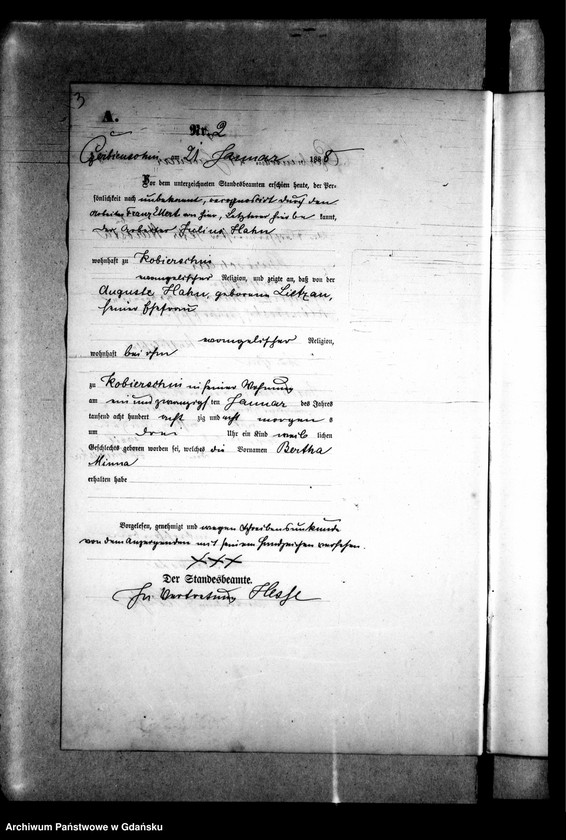 3
A.
Nr. 2
am 21 Januar 1888
Vor dem unterzeichneten Standesbeamten erschien heute, der Per-
sönlichkeit nach unbekannt, recognoscirt durch den
Arbeiter Franz von hier, Letzterer hierbe kannt,
der Arbeiter Julius Hahn
wohnhaft zu Kobierschin
evangelischer Religion, und zeigte an, daß von der
Auguste Hahn, geborene Lietzau,
seiner Ehefrau
evangelischer Religion,
wohnhaft bei ihm
zu Kobierschin in seiner Wohnung
am ein und zwanzigs ten Januar des Jahres
tausend acht hundert acht zig und acht morgens
um drei Uhr ein Kind weib lichen
Geschlechts geboren worden sei, welches die Vornamen Bertha
Minna
erhalten habe
Vorgelesen, genehmigt und wegen Schreibensunkunde
von dem Anzeigenden mit seinem Handzeichen versehen.
XXX
Der Standesbeamte.
In Vertretung Hesse
Archiwum Państwowe w Gdańsku